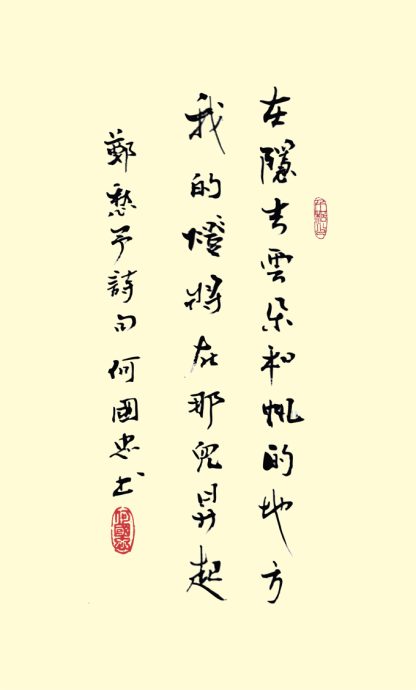 在隱去雲朵和帆的地方
我的燈將在那兒昇起
鄭愁予詩句何國忠書
何國忠